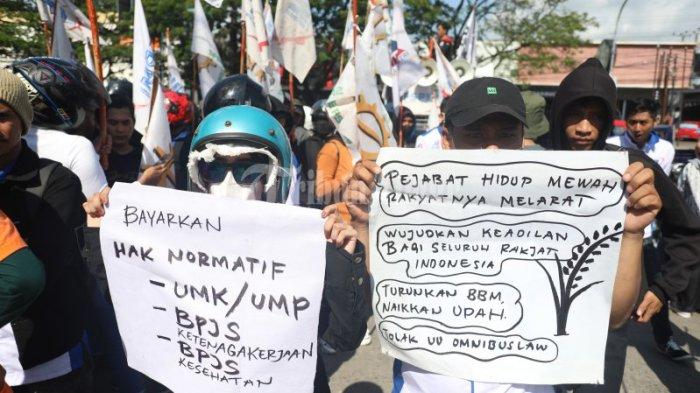 BAYARKAN
HAK NORMATIF
- UMK/UMP
- BPJS
KETENAGAKERJAAN
- BPJS
KESEHATAN
PEJABAT HIDUP MEWAH
RAKYATNYA MELARAT
WUJUDKAN KEADILAN
BAGI SELURUH RAKJAT
INDONESIA
TURUNKAN BBM,
NAIKKAN UPAH.
TOLAK UU OMNIBUSLAW